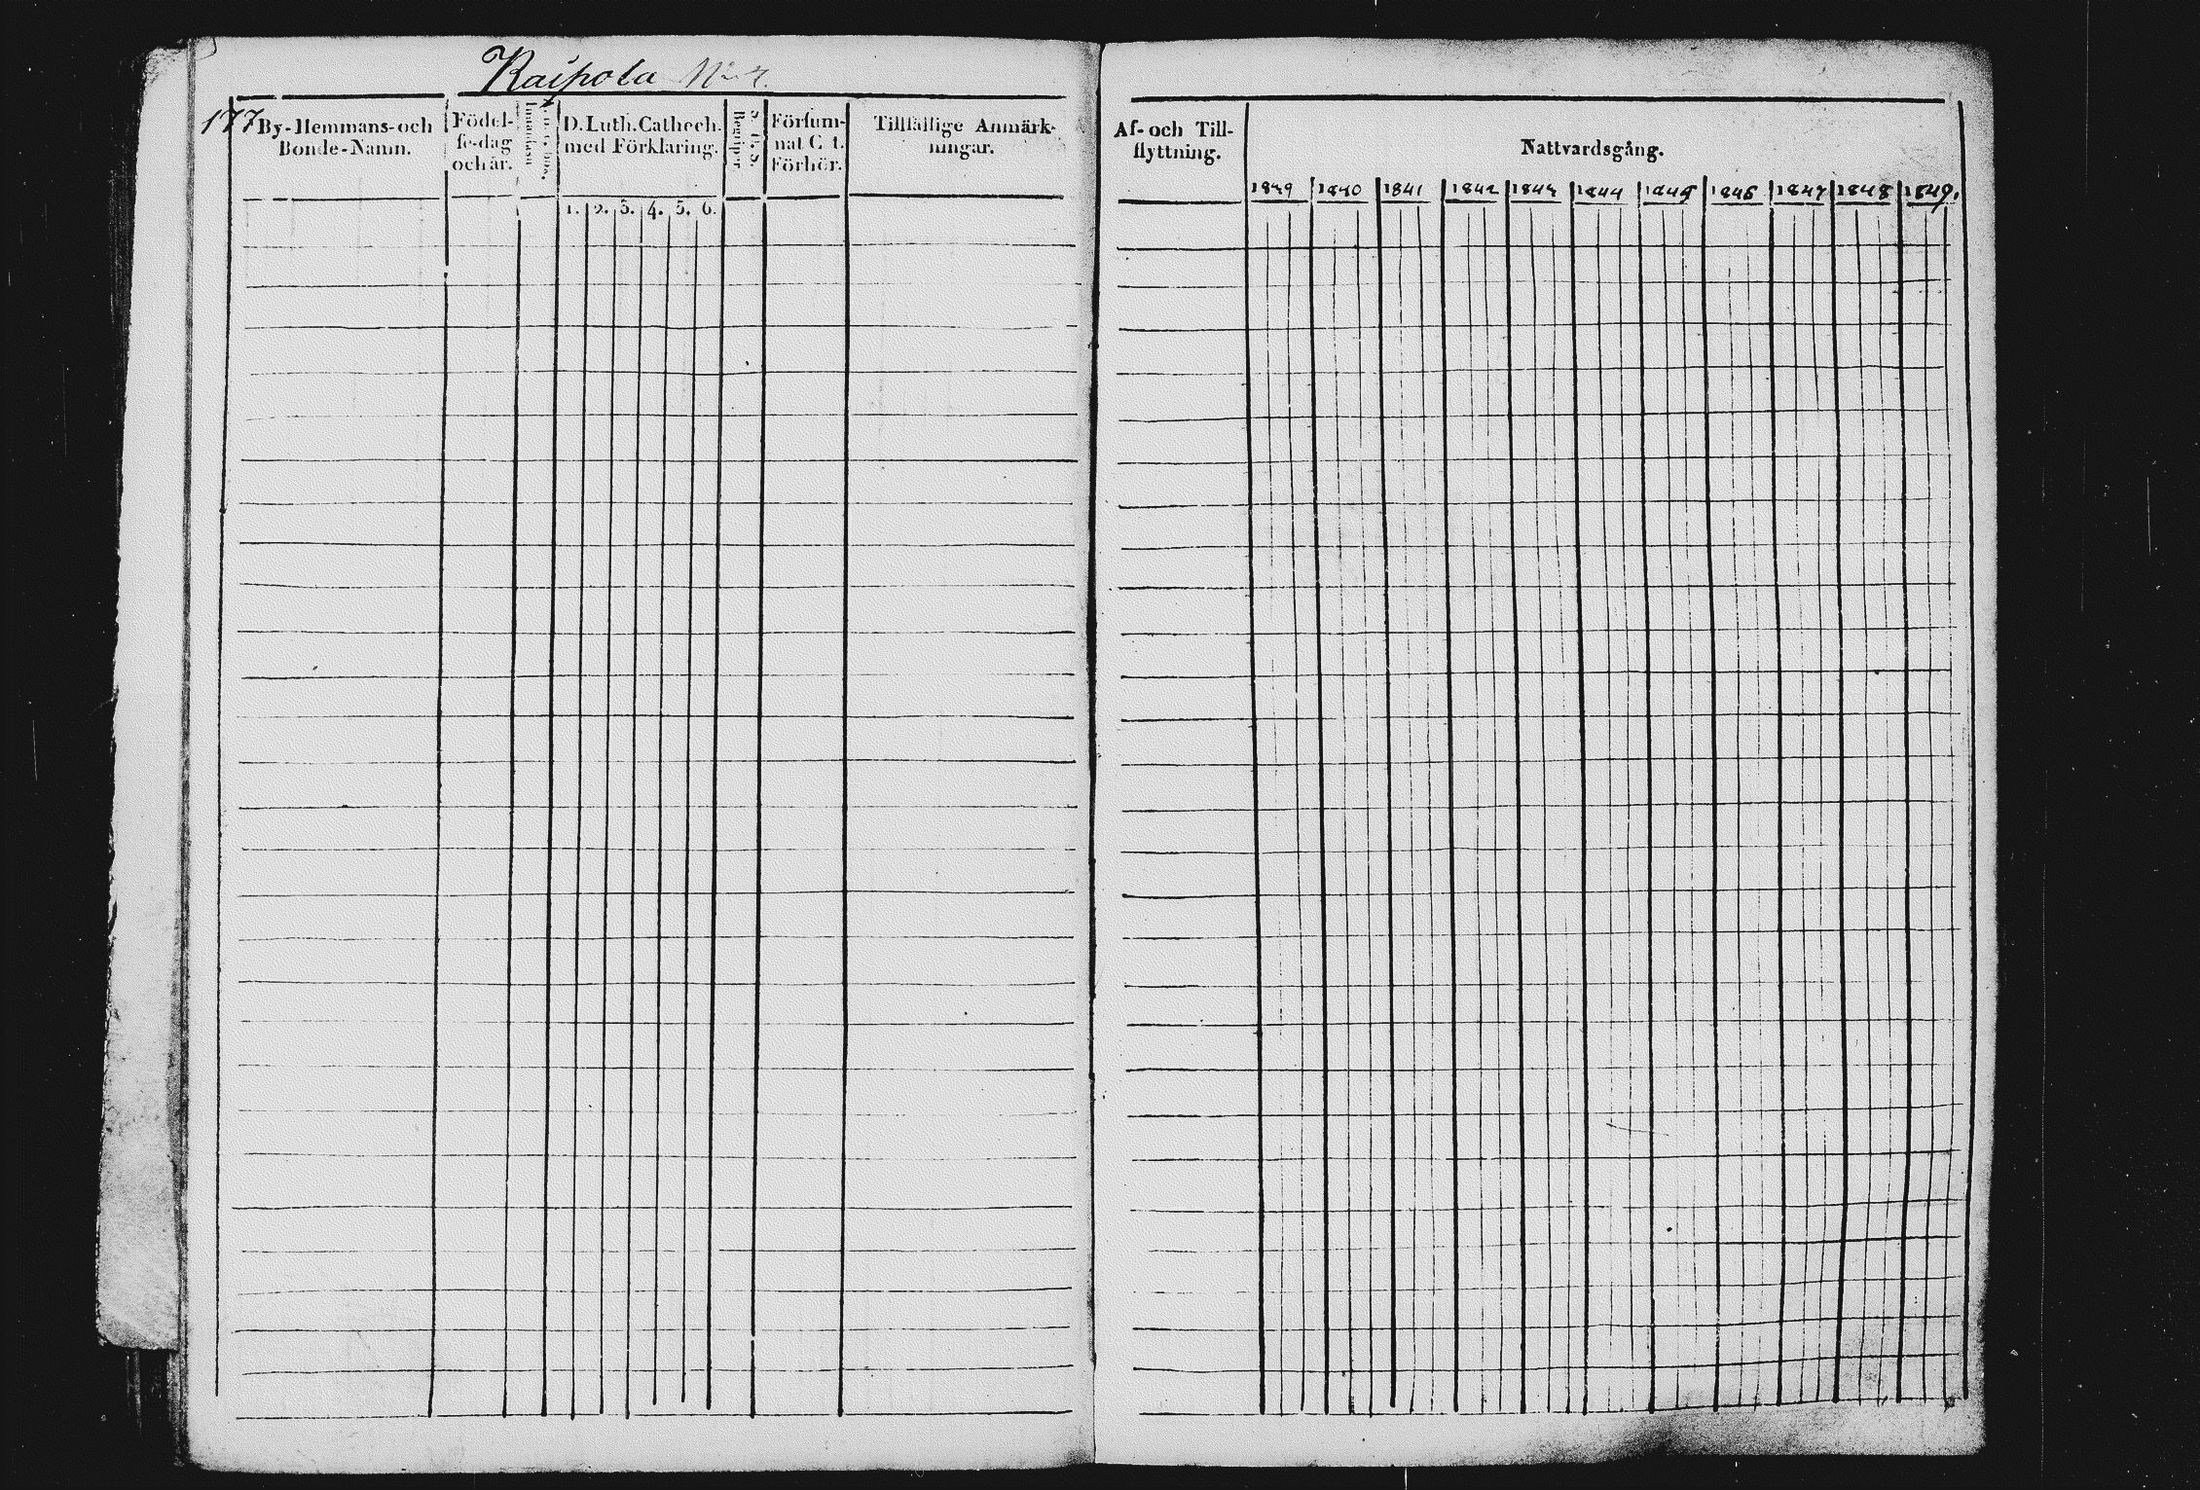 Raipola No
177
By-Hemmans- och
Bonde-Namn.
Födel-
se-dag
och år.
D. Luth. Cathech.
med Förklaring.
1. 2. 3. 4. 5. 6.
Begriper
Försum-
nat C t.
Förhör.
Tillfällige Anmärk-
ningar.
Af- och Till-
flyttning.
Nattvardsgång.
1840 1841 1842 1844 1845 1846 1847 1848 1849.